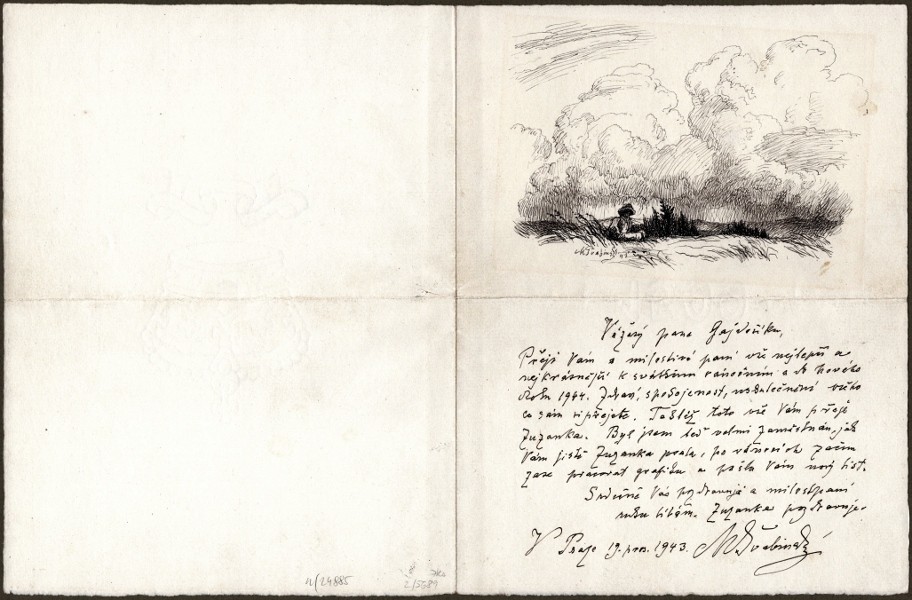 Vážený pane Gajdošíku,
Přeji Vám a milostivé paní vše nejlepší a
nejkrásnější k svátkům vánočním a do Nového
Roku 1944. Zdraví, spokojenost, uskutečnění všeho
co sám si přejete. Taktéž toto vše Vám přeje
Zuzanka. Byl jsem teď velmi zaměstnán, jak
Vám jistě Zuzanka psala, po vánocích začnu
zase pracovat grafiku a pošlu Vám nový list.
Srdečně Vás pozdravuji a milostpaní
ruku líbám. Zuzanka pozdravuje.
V Praze 19. pros. 1943. M Švabinský
u/24885
2/5689